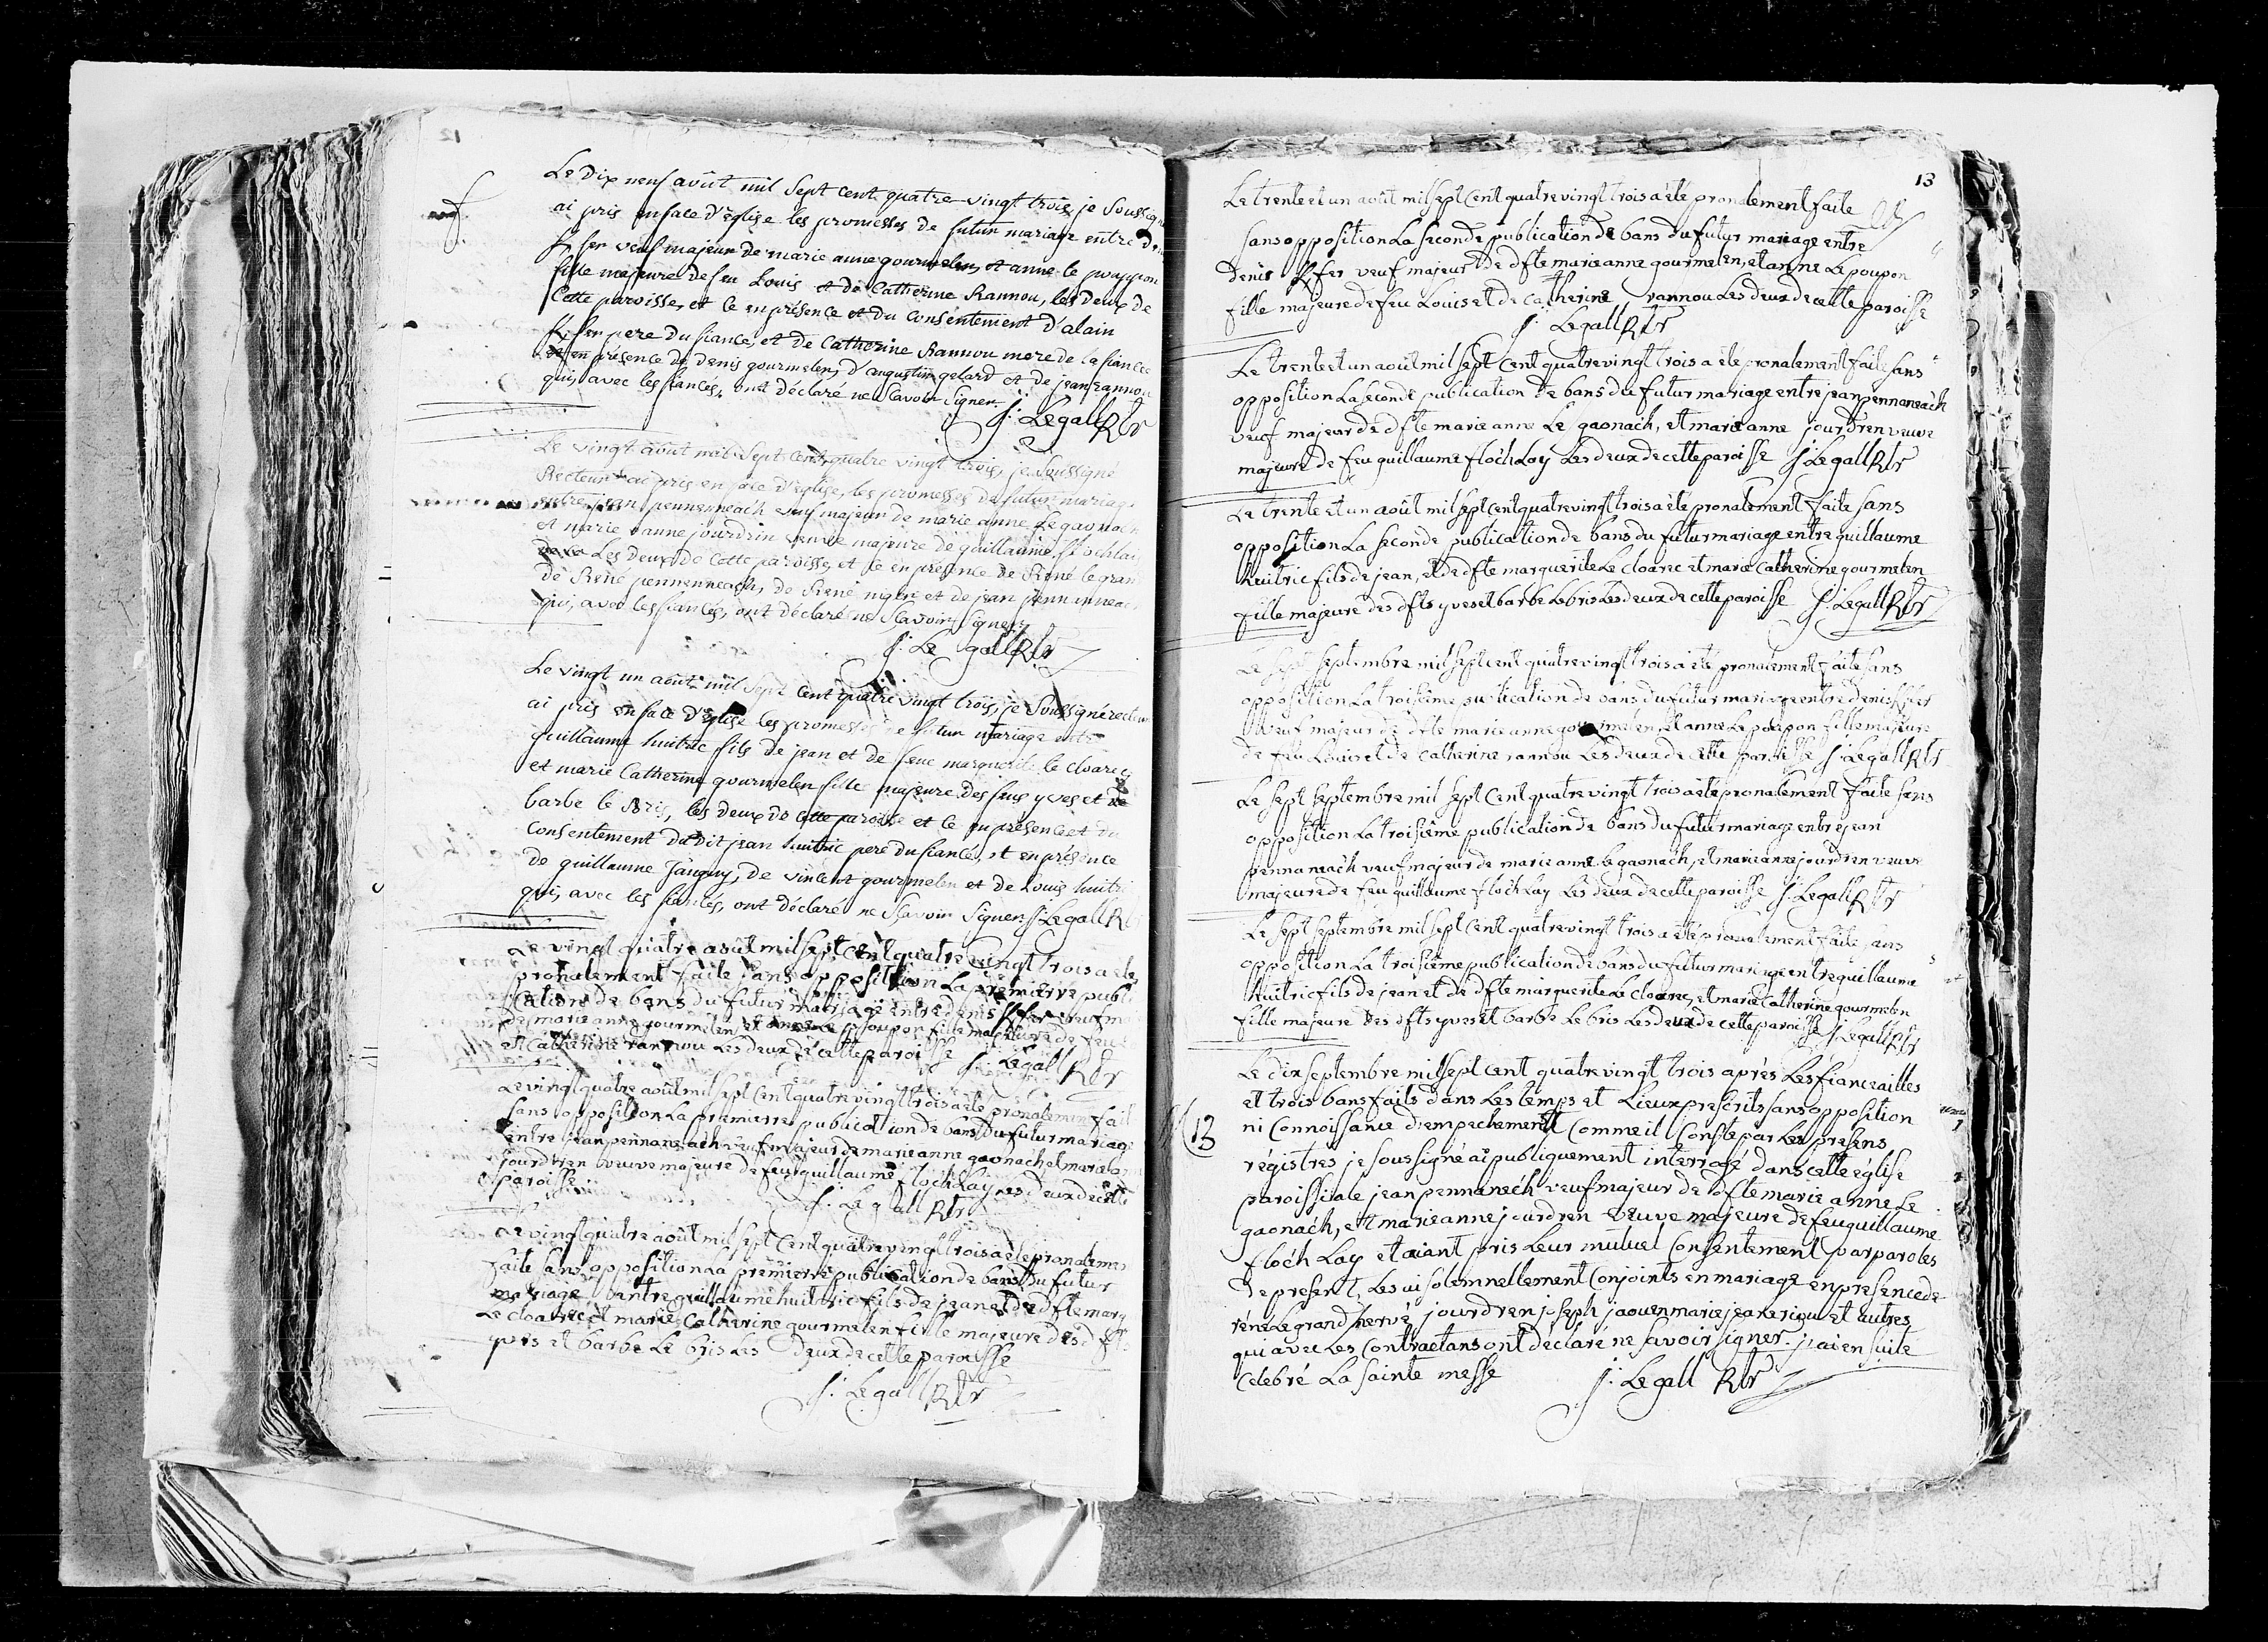 12
Le dix neuf août mil Sept Cent quatre-vingt trois, je Soussigné
ai pris en face d'Eglise les promesses de futur mariage entre
fer veuf majeur de marie anne gourmelen, et anne le pouppon
fille majeure de feu Louis et de Catherine Rannou, les Deux de
Cette paroisse, et ce en présence et du Consentement d'alain
fer pere du fiancé, et de Catherine Rannou mere de la fiancée
en présence de Denis gourmelen, d'augustin gelard et de jean rannou
qui, avec les fiancés, ont déclaré ne Scavoir Signer.
j: Le gall Rtr
Le vingt août mil Sept Cent quatre vingt trois, je Soussigné
Recteur ai pris en face d'Eglise, les promesses de futur mariage
entre jean pennenneach veuf majeur de marie anne Le gaonach
et marie anne jourdrin veuve majeure de guillaume flochlai
Les Deux de Cette paroisse, et ce en présence de René le gran
de René pennenneach, de René nigen et de jean pennenneach
qui, avec les fiancés, ont déclaré ne Scavoir Signer
j: Le gall Rtr
Le vingt un août mil Sept Cent quatre vingt trois, je Soussigné recteur
ai pris en face d'Eglise les promesses de futur mariage entre
guillaume huitric fils de jean et de feue marguerite le cloarec
et marie Catherine gourmelen fille majeure des feus yves et de
barbe le Bris, les deux de Cette paroisse et ce en présence et du
Consentement dudit jean huitric pere du fiancé, et en présence
de guillaume janguy, de vincent gourmelen et de Louis huitri
qui, avec les fiancés, ont déclaré ne Scavoir Signer j: Le gall R
Le vingt quatre août mil sept Cent quatre vingt trois a été
pronalement faite sans opposition La premierre publi
cation de bans du futur mariage entre denis kfer veuf m
de marie anne gourmelen, et anne Le poupon fille majeure de feu
et Catherine rannou Les deux de cette paroisse j: Le gall Rtr
Le vingt quatre août mil sept Cent quatre vingt trois a été pronalement fait
sans opposition La premierre publication de bans du futur mariage
entre jean pennaneach veuf majeur de marie anne gaonach et marie an
jourdren veuve majeure de feu guillaume floch Lay Les deux de cette
paroisse j: Le gall Rtr
Le vingt quatre août mil sept Cent quatre vingt trois a été pronaleme
faite sans opposition La premierre publication de bans du futur
mariage entre guillaume huitric fils de jean et de dfte marg
Le cloarec et marie Catherine gourmelen fille majeure des dfts
yves et barbe Le bris Les deux de cette paroisse
j: Le gall Rtr
13
Le trente et un août mil sept Cent quatre vingt trois a été pronalement faite
sans opposition La seconde publication de bans du futur mariage entre
denis kfer veuf majeur de dfte marie anne gourmelen, et anne Le poupon
fille majeure de feu Louis et de Catherine rannou Les deux de cette paroisse
j: Le gall Rtr
Le trente et un août mil sept Cent quatre vingt trois a été pronalement faite sans
opposition La seconde publication de bans du futur mariage entre jean pennaneach
veuf majeur de dfte marie anne Le gaonach, et marie anne jourdren veuve
majeure de feu guillaume floch Lay Les deux de cette paroisse j: Le gall Rtr
Le trente et un août mil sept Cent quatre vingt trois a été pronalement faite sans
opposition La seconde publication de bans du futur mariage entre guillaume
huitric fils de jean, et de dfte marguerite Le Cloarec et marie Catherine gourmelen
fille majeure des dfts yves et barbe Le bris Les deux de cette paroisse j: Le gall Rtr
Le sept septembre mil sept cent quatre vingt trois a été pronalement faite sans
opposition La troisième publication de bans du futur mariage entre denis kfer
veuf majeur de dfte marie anne gourmelen, et anne Le poupon fille majeure
de feu Louis et de Catherine rannou Les deux de cette paroisse j: Le gall Rtr
Le sept septembre mil sept Cent quatre vingt trois a été pronalement faite sans
opposition La troisième publication de bans du futur mariage entre jean
pennaneach veuf majeur de marie anne Le gaonach, et marie anne jourdren veuve
majeure de feu guillaume floch Lay Les deux de cette paroisse j: Le gall Rtr
Le sept septembre mil sept Cent quatre vingt trois a été pronalement faite sans
opposition La troisième publication de bans du futur mariage entre guillaume
huitric fils de jean et de dfte marguerite Le Cloarec, et marie Catherine gourmelen
fille majeure des dfts yves et barbe Le bris Les deux de cette paroisse j: Le gall Rtr
13
Le dix septembre mil sept cent quatre vingt trois après Les fiancailles
et trois bans faits dans Les temps et Lieux prescrits sans opposition
ni Connoissance d'empechement Comme il Conste par Les presens
régistres je soussigné ai publiquement interrogé dans cette église
paroissiale jean pennanech veuf majeur de dfte marie anne Le
gaonach, et marie anne jourdren veuve majeure de feu guillaume
floch Lay et aiant pris Leur mutuel Consentement par paroles
de present, Les ai solemnellement Conjoints en mariage en presence de
réné Le grand hervé jourdren joseph jaouen marie jeane riou et autres
qui avec Les Contractans ont déclaré ne savoir signer. j'ai ensuite
Celebré La sainte messe j: Le gall Rtr